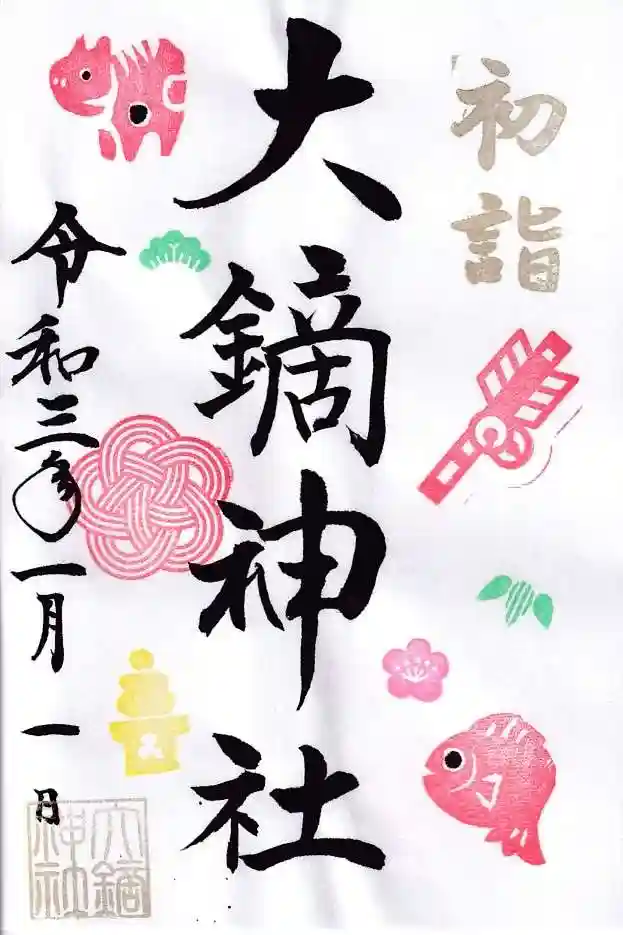 初詣
大鏑神社
令和三年一月一日
大鏑
神社